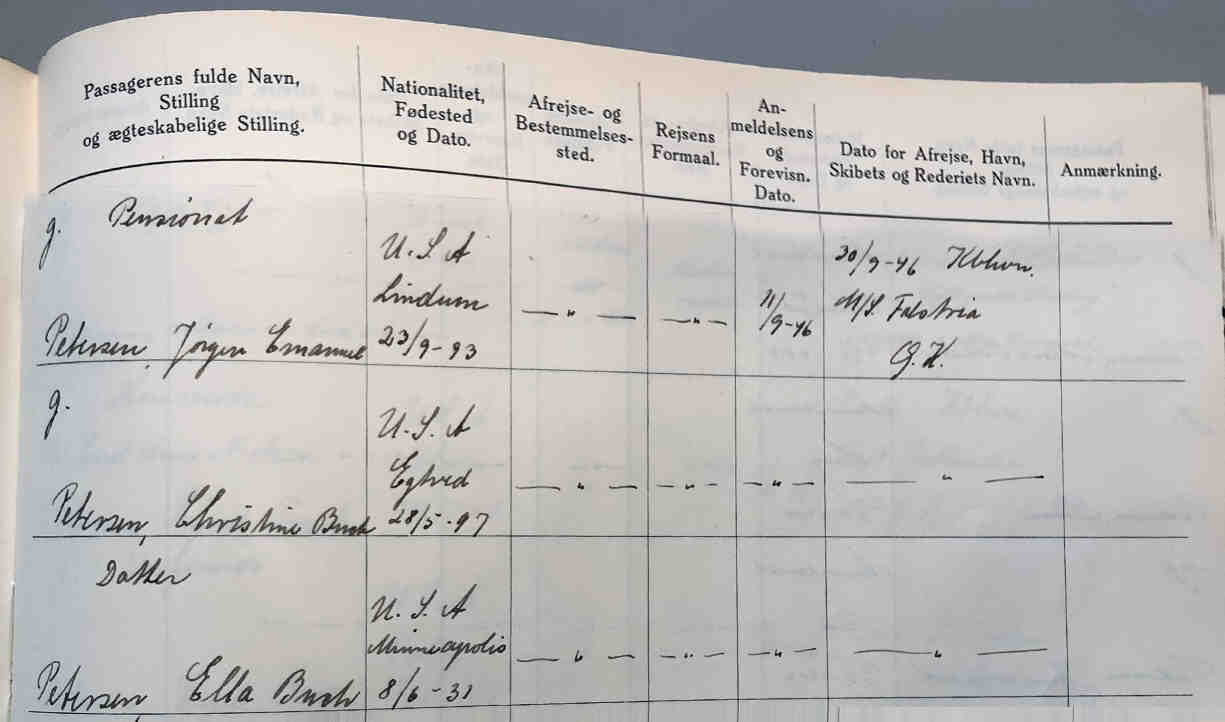 Passagerens fulde Navn,
Stilling
og ægteskabelige Stilling.
Nationalitet,
Fødested
og Dato.
Afrejse- og
Bestemmelses-
sted.
Rejsens
Formaal.
An-
meldelsens
og
Forevisn.
Dato.
Dato for Afrejse, Havn,
Skibets og Rederiets Navn.
Anmærkning.
g. Pensionat
Petersen, Jørgen Emanuel
U.S.A
Lindum
23/9-93
— " —
— " —
11/9-46
30/9-46 Kbhvn.
M/S. Falstria
Ø.K.
g.
Petersen, Christine Buch
U.S.A
Egtved
28/5-97
— " —
— " —
— " —
— " —
Datter
Petersen, Ella Buch
U.S.A
Minneapolis
8/6-31
— " —
— " —
— " —
— " —